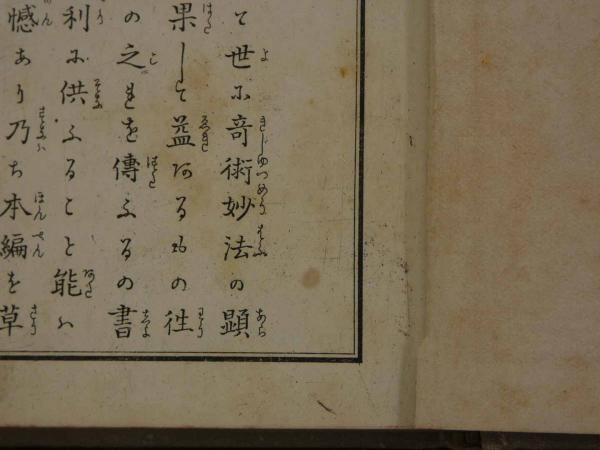 て世に奇術妙法の顕
果して益あるもの徃
の之れを傳ふるの書
利に供ふること能ハ
憾あり乃ち本編を草